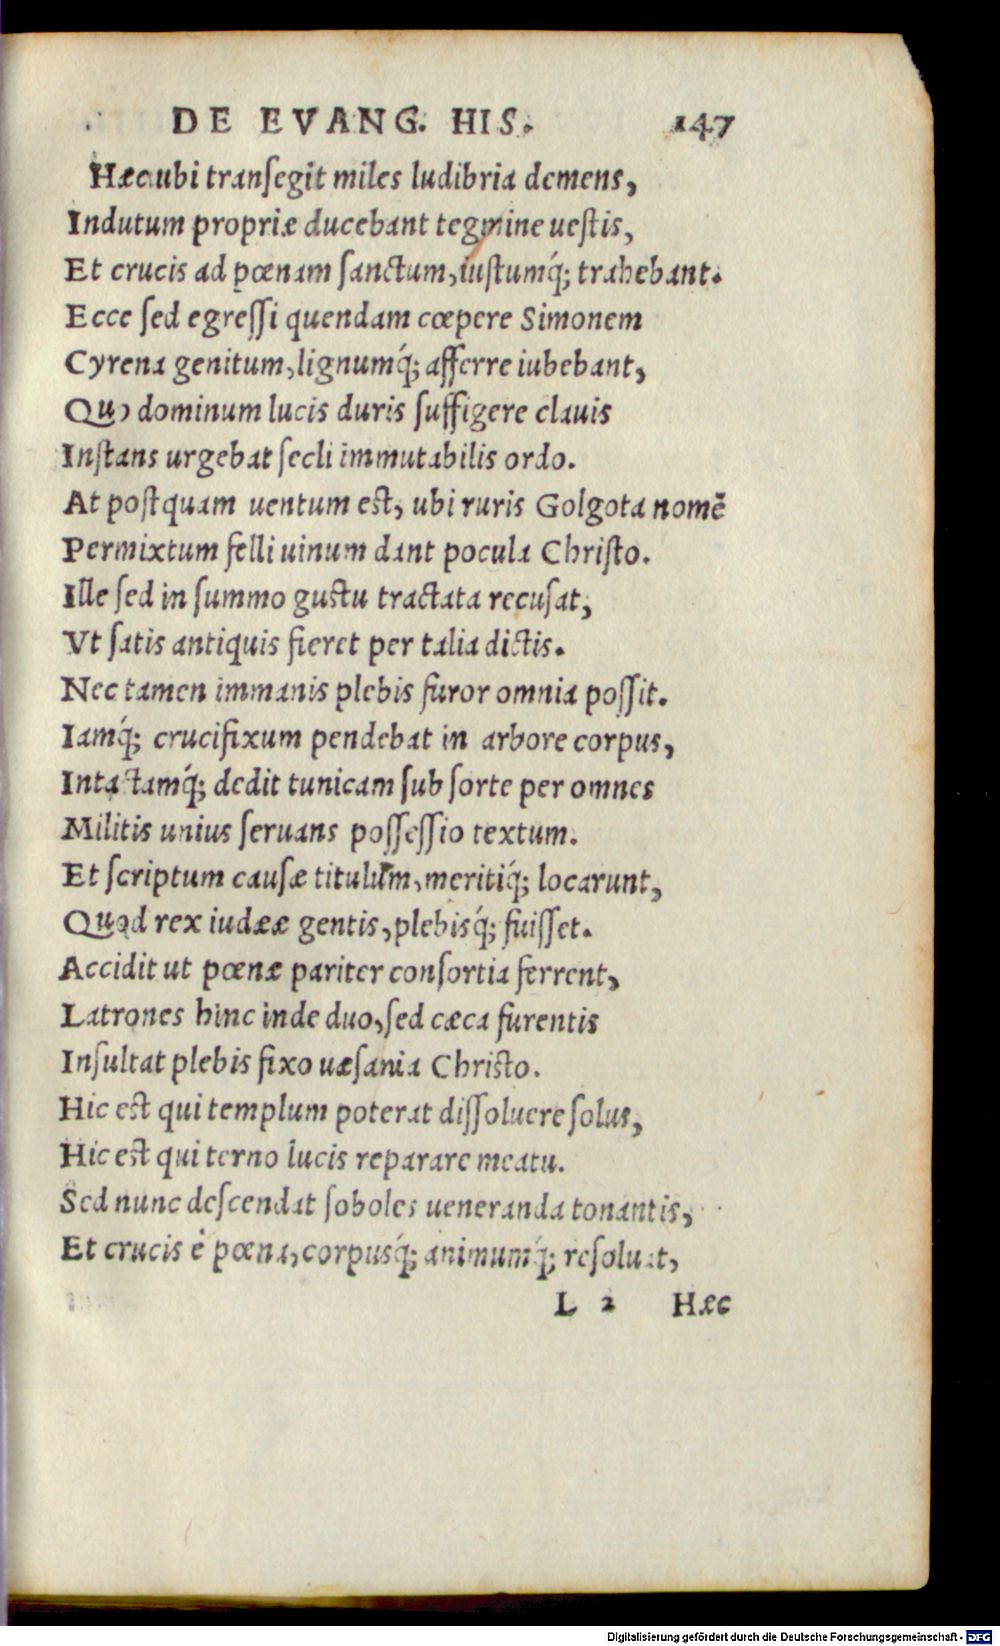 DE EVANG. HIS. 147
Hæc ubi tranſegit miles ludibria demens,
Indutum propriæ ducebant tegmine ueſtis,
Et crucis ad pœnam ſanctum, iuſtumq́; trahebant.
Ecce ſed egreſſi quendam cœpere Simonem
Cyrena genitum, lignumq́; afferre iubebant,
Quo dominum lucis duris ſuffigere clauis
Inſtans urgebat ſecli immutabilis ordo.
At poſtquam uentum est, ubi ruris Golgota nomẽ
Permixtum felli uinum dant pocula Chriſto.
Ille ſed in ſummo guſtu tractata recuſat,
Vt ſatis antiquis fieret per talia dictis.
Nec tamen immanis plebis furor omnia poſſit.
Iamq́; crucifixum pendebat in arbore corpus,
Intactamq́; dedit tunicam ſub ſorte per omnes
Militis unius ſeruans poſſeſſio textum.
Et ſcriptum cauſæ titulum, meritiq́; locarunt,
Quod rex iudææ gentis, plebisq́; fuiſſet.
Accidit ut pœnæ pariter conſortia ferrent,
Latrones hinc inde duo, ſed cæca furentis
Inſultat plebis fixo uæſania Chriſto.
Hic est qui templum poterat diſſoluere ſolus,
Hic est qui terno lucis reparare meatu.
Sed nunc deſcendat ſoboles ueneranda tonantis,
Et crucis è pœna, corpusq́; animumq́; reſoluat,
L 2 Hæc
Digitalisierung gefördert durch die Deutsche Forschungsgemeinschaft - DFG